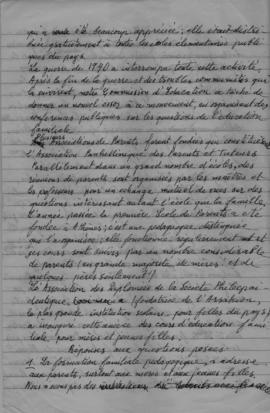 qui a route été beaucoup appréciée; elle était distri-
buée gratuitement à toutes les écoles élémentaires publi-
ques du pays.
La guerre de 1940 a interrompu toute cette activité.
Après la fin de la guerre et des troubles communistes qui
la suivirent, notre Commission d'Education a tâché de
donner un nouvel essor à ce mouvement, en organisant des
conférences publiques sur les questions de l'éducation
familiale.
Plusieurs Associations de Parents furent fondées
L'Association des Parents et Tuteurs.
Parallèlement dans un grand nombre d'écoles, des
réunions de parents sont organisées par les maîtres et
les professeurs pour un échange mutuel de vues sur des
questions intéressant autant l'école que la famille.
L'année passée la première Ecole de Parents a été
fondée à Athènes; c'est une pédagogue distinguée
qui l'a organisée; elle fonctionne régulièrement et
ses cours sont suivis par un nombre considérable
de parents (en grande majorité de mères et de
quelques pères seulement!)
L'Association des Diplômées de la Société Philecpai-
deutique, (fondatrice de l'Arsakion,
la plus grande institution scolaire pour filles du pays)
a inauguré cette année des cours d'éducation fami-
liale, pour mères et jeunes filles.
Réponses aux questions posées
1. La formation familiale pédagogique s'adresse
aux parents, surtout aux mères et aux jeunes filles.
Nous n'avons pas des